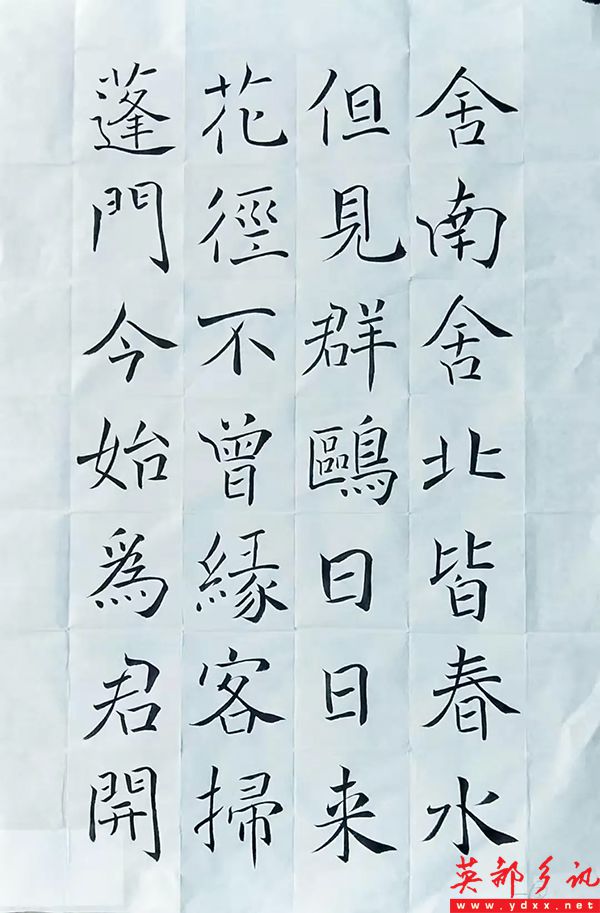 舍南舍北皆春水
但見群鷗日日来
花徑不曾緣客掃
蓬門今始爲君開
英都乡讯
www.ydxx.net